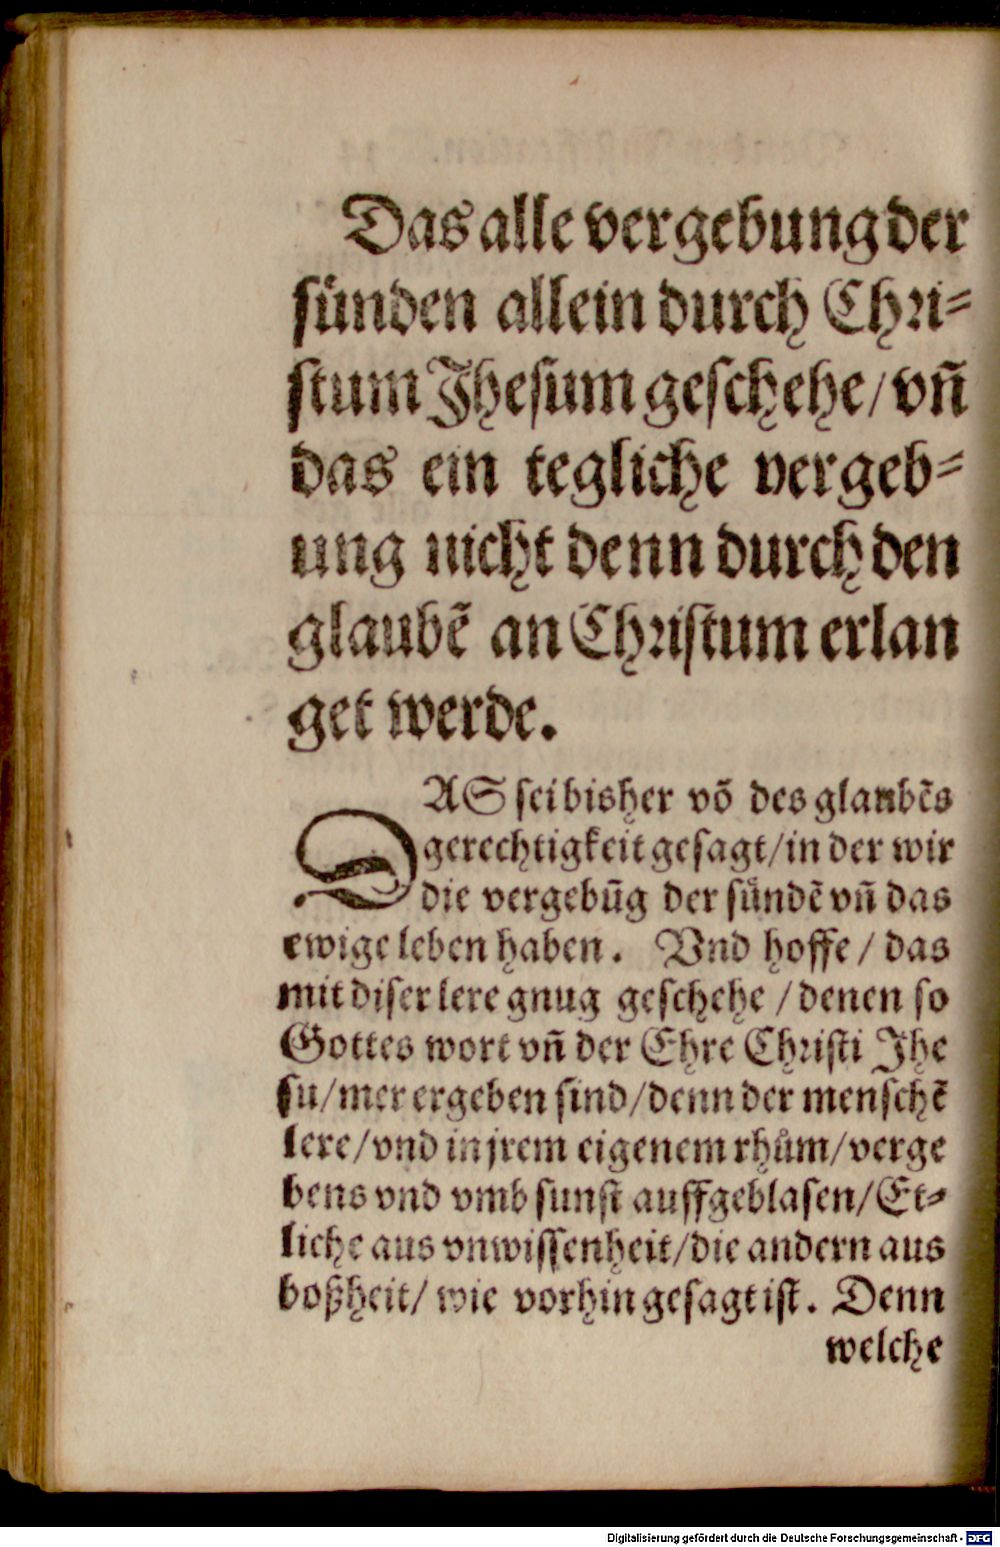 Das alle vergebung der
sünden allein durch Chri-
stum Jhesum geschehe/ vñ
das ein tegliche vergeb-
ung nicht denn durch den
glaubẽ an Christum erlan
get werde.
DAS sei bisher võ des glaubẽs
gerechtigkeit gesagt/ in der wir
die vergebũg der sündẽ vñ das
ewige leben haben. Vnd hoffe/ das
mit diser lere gnug geschehe/ denen so
Gottes wort vñ der Ehre Christi Jhe
su/ mer ergeben sind/ denn der menschẽ
lere/ vnd in jrem eigenem rhům/ verge
bens vnd vmb sunst auffgeblasen/ Et-
liche aus vnwissenheit/ die andern aus
boßheit/ wie vorhin gesagt ist. Denn
welche
Digitalisierung gefördert durch die Deutsche Forschungsgemeinschaft - DFG